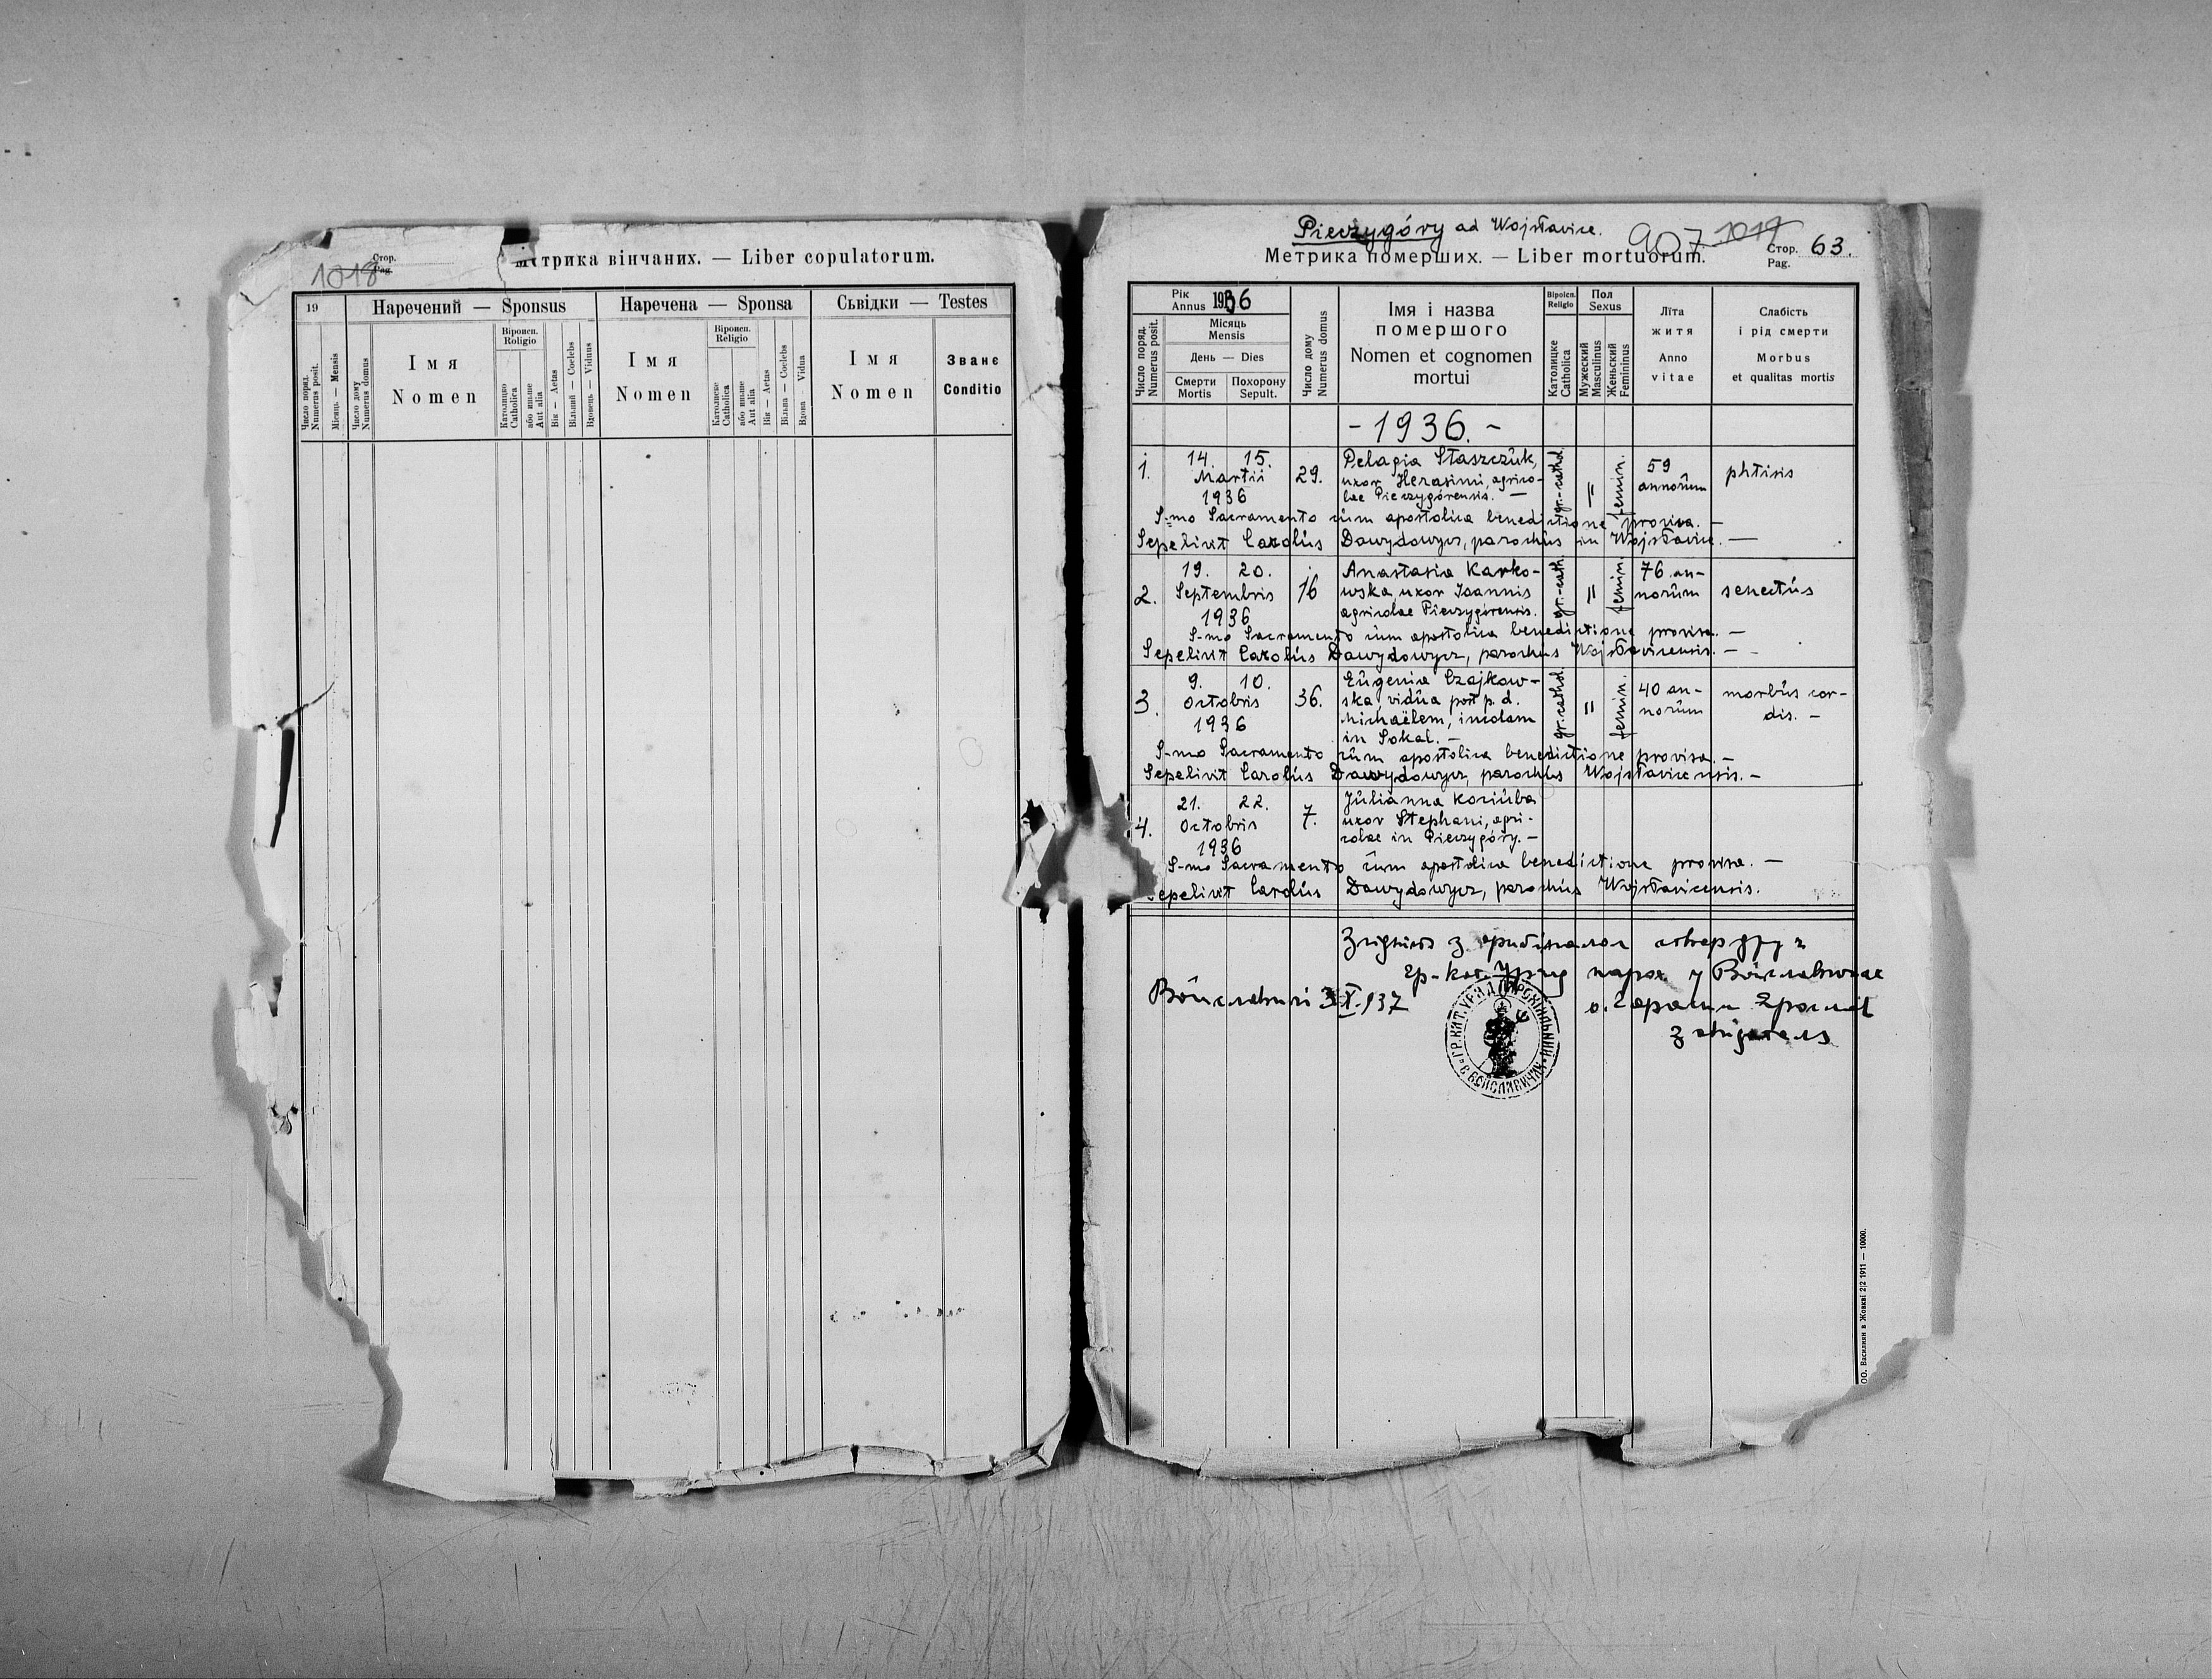 1018
Стор.
Pag.
Метрика вінчаних. — Liber copulatorum.
19
Наречений — Sponsus
Наречена — Sponsa
Сьвідки — Testes
Число поряд.
Numerus posit.
Місяць — Mensis
Число дому
Numerus domus
Імя
Nomen
Віроисп.
Religio
Католицко
Catholica
або иньше
Aut alia
Вік — Aetas
Вільний — Coelebs
Вдовець — Viduus
Імя
Nomen
Віроисп.
Religio
Католицке
Catholica
або иньше
Aut alia
Вік — Aetas
Вільна — Coelebs
Вдова - Vidua
Імя
Nomen
Званє
Conditio
Pieczygóry ad Wojsławice.
907 1019
Метрика померших. — Liber mortuorum.
Стор.
Pag.
63.
Рік
Annus 1936
Число поряд.
Numerus posit.
Місяць
Mensis
День — Dies
Смерти
Mortis
Похорону
Sepult.
Число дому
Numerus domus
Імя і назва
помершого
Nomen et cognomen
mortui
Віроісп.
Religio
Католицке
Catholica
Пол
Sexus
Мужеский
Masculinus
Женьский
Femininus
Літа
житя
Anno
vitae
Слабість
і рід смерти
Morbus
et qualitas mortis
- 1936. -
1. 14. 15. Martii 1936 29. Pelagia Staszczuk,
uxor Herasimi, agrico-
lae Pieczygórensis. —
gr.-cathol. = feminin. 59 annorum phtisis
S-mo Sacramento cum apostolica benedictione provisa. —
Sepelivit Carolus Dawydowycz, parochus in Wojsławice. —
2. 19. 20. Septembris 1936 16 Anastasia Karko-
wska, uxor Joannis
agricolae Pieczygórensis.
gr.-cath. = feminin. 76 an-
norum senectus
S-mo Sacramento cum apostolica benedictione provisa. —
Sepelivit Carolus Dawydowycz, parochus Wojsławicensis. —
3. 9. 10. Octobris 1936 36. Eugenia Czajkow-
ska, vidua post p. d.
Michaëlem, incolam
in Sokal. —
gr. cathol. = feminin. 40 an-
norum morbus cor-
dis. —
S-mo Sacramento cum apostolica benedictione provisa. —
Sepelivit Carolus Dawydowycz, parochus Wojsławicensis. —
4. 21. 22. Octobris 1936 7. Julianna Koziuba
uxor Stephani, agri-
colae in Pieczygóry. —
S-mo Sacramento cum apostolica benedictione provisa. —
Sepelivit Carolus Dawydowycz, parochus Wojsławicensis.
гр-кат. Уряд парох. у
X. 937
ГР.КАТ. УРЯД ПАРОХІЯЛЬНИЙ
В ВОЙСЛАВИЧАХ
ОО. Василіян в Жовкві 2|2 1911 — 10000.